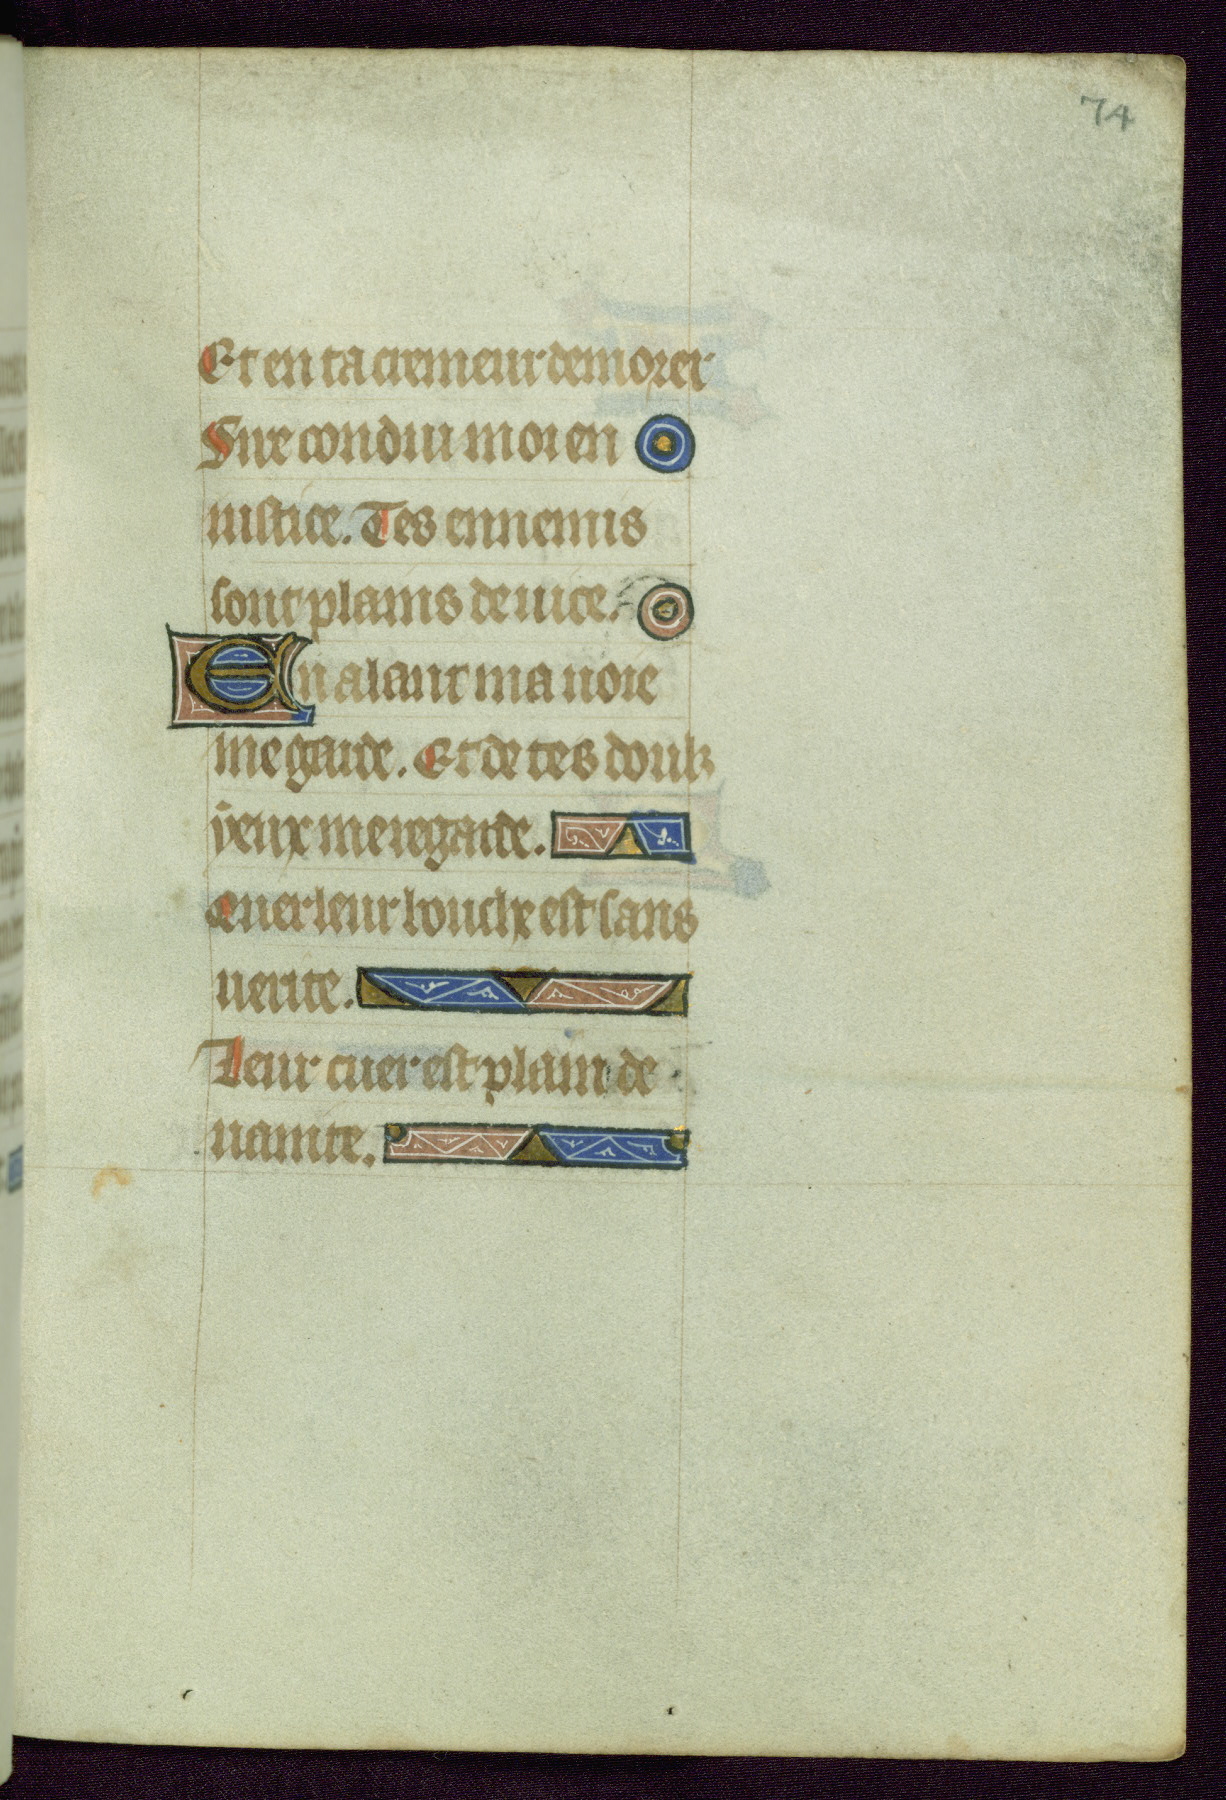 74
Et en ta cremeur demorer
Sire condui moi en
iustice. Tes ennemis
sont plains de uice.
En alant ma uoie
me garde. Et de tes doulz
yeux me regarde.
Quer leur bouche est sans
uerite.
Leur cuer est plain de
uanite.